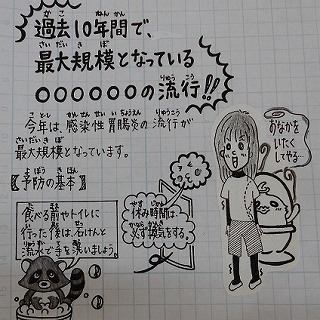 過去10年間で、
最大規模となっている
○○○○○○の流行!!
今年は、感染性胃腸炎の流行が
最大規模となっています。
【予防の基本】
食べる前やトイレに
行った後は、石けんと
流水で手を洗いましょう。
休み時間は、
必ず換気をする。
おなかを
いたく
してやる…